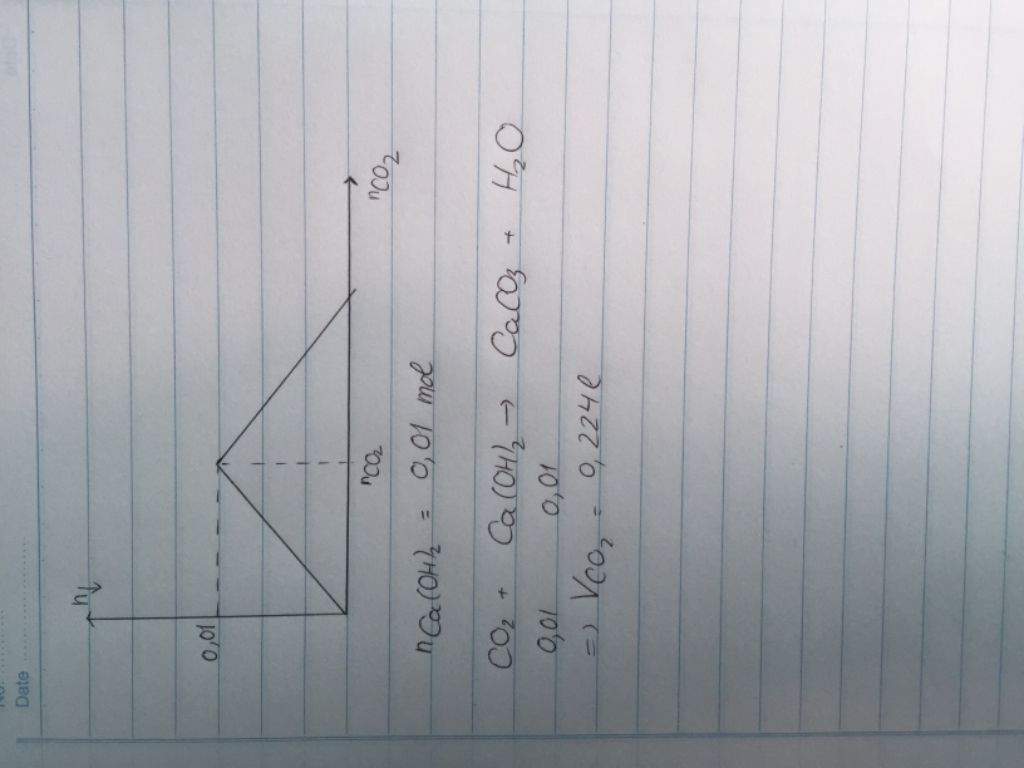 No.
Date
n↓
0,01
nCO₂
nCO₂
nCa(OH)₂ = 0,01 mol
CO₂ + Ca(OH)₂ → CaCO₃ + H₂O
0,01 0,01
=> VCO₂ = 0,224l